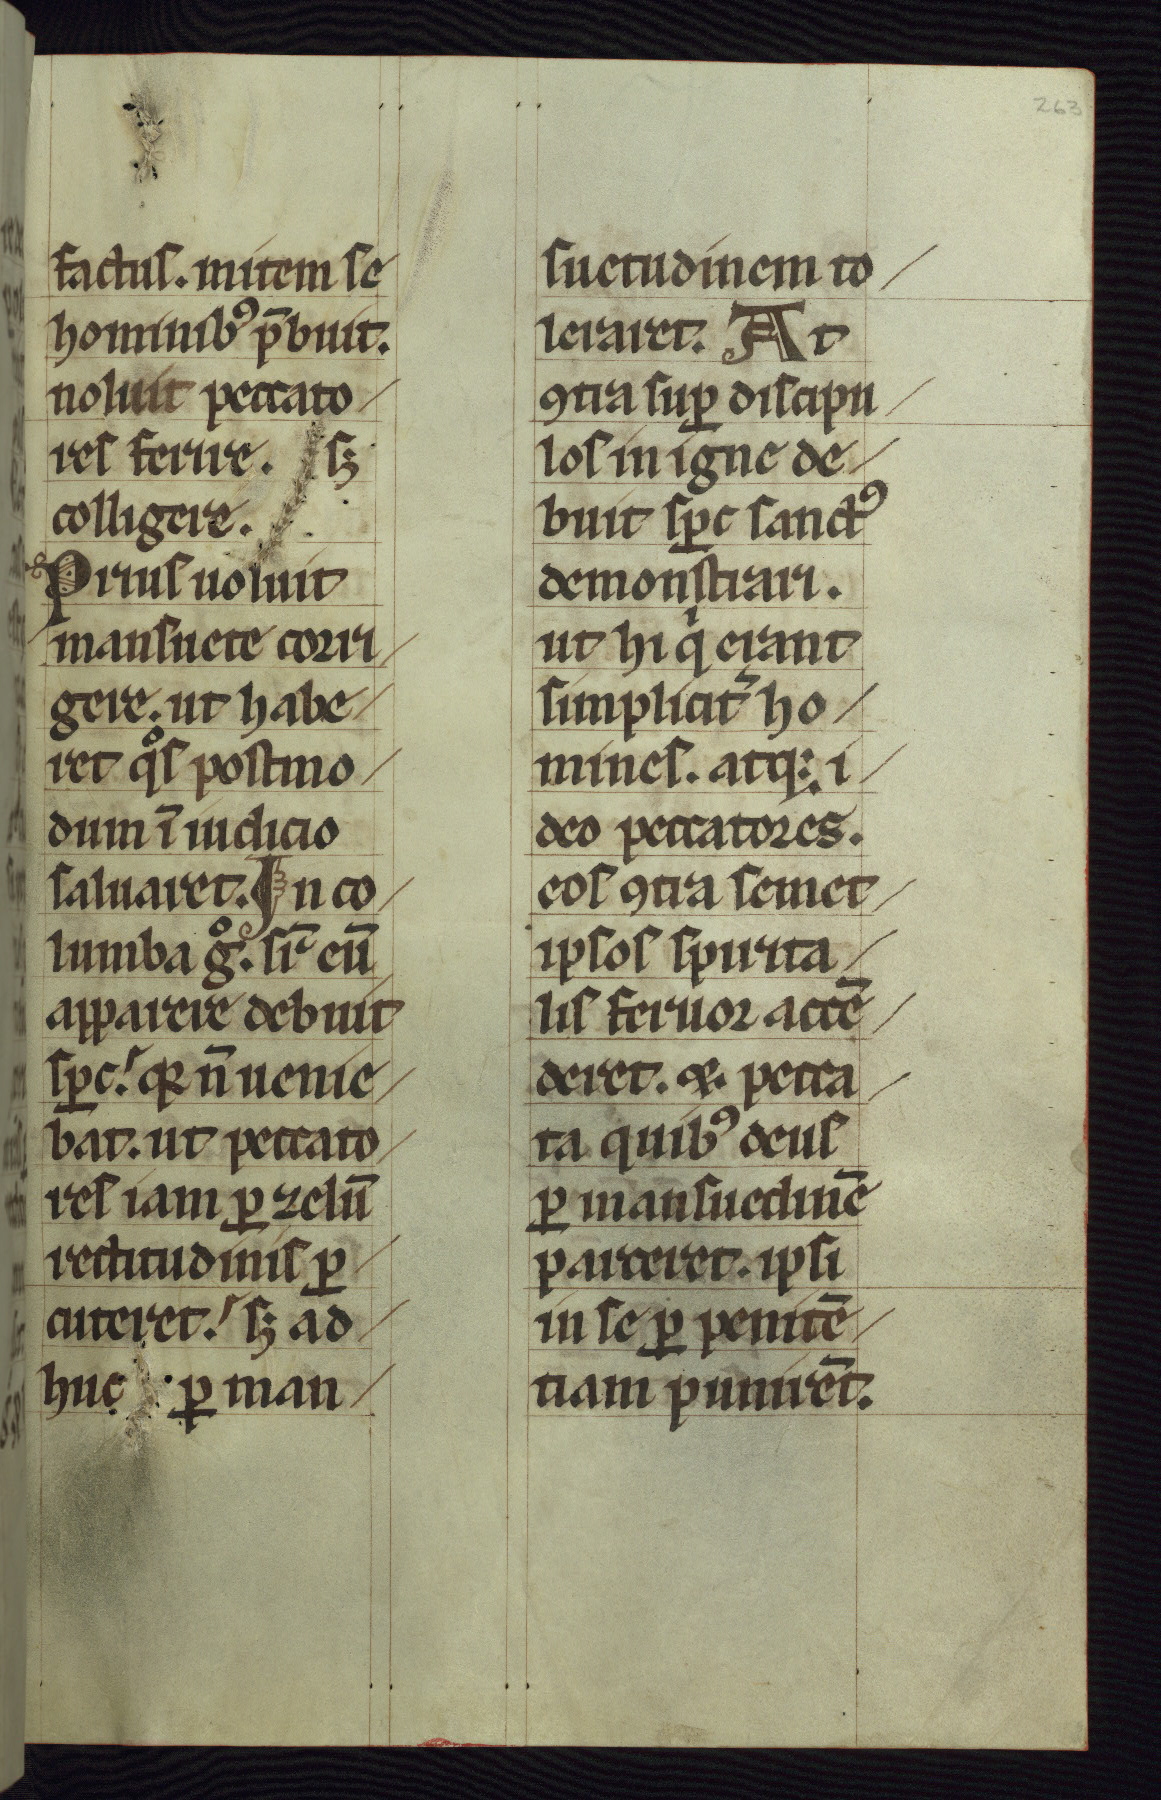 263
factus. mitem se
hominibꝰ p̄buit.
noluit peccato
res ferire. sꝫ
colligere.
Prius uoluit
mansuete corri
gere. ut habe
ret qͦs postmo
dum ī iudicio
saluaret. In co
lumba gͦ. sr̄ eū
apparere debuit
sp̲c. qꝛ n̄ uenie
bat. ut peccato
res iam ꝑ zelū
rectitudinis ꝑ
cuteret. sꝫ ad
huc ꝑ man
suetudinem to
leraret. At
ꝯtra suꝑ discipu
los in igne de
buit sp̲c sanctꝰ
demonstrari.
ut hi qͥ erant
simplicit͛ ho
mines. atqꝫ i
deo peccatores.
eos ꝯtra semet
ipsos spirita
lis feruor accē
deret. ⁊ pecca
ta quibꝰ deus
ꝑ mansuetinē
parceret. ipsi
in se ꝑ penitē
tiam punirēt.